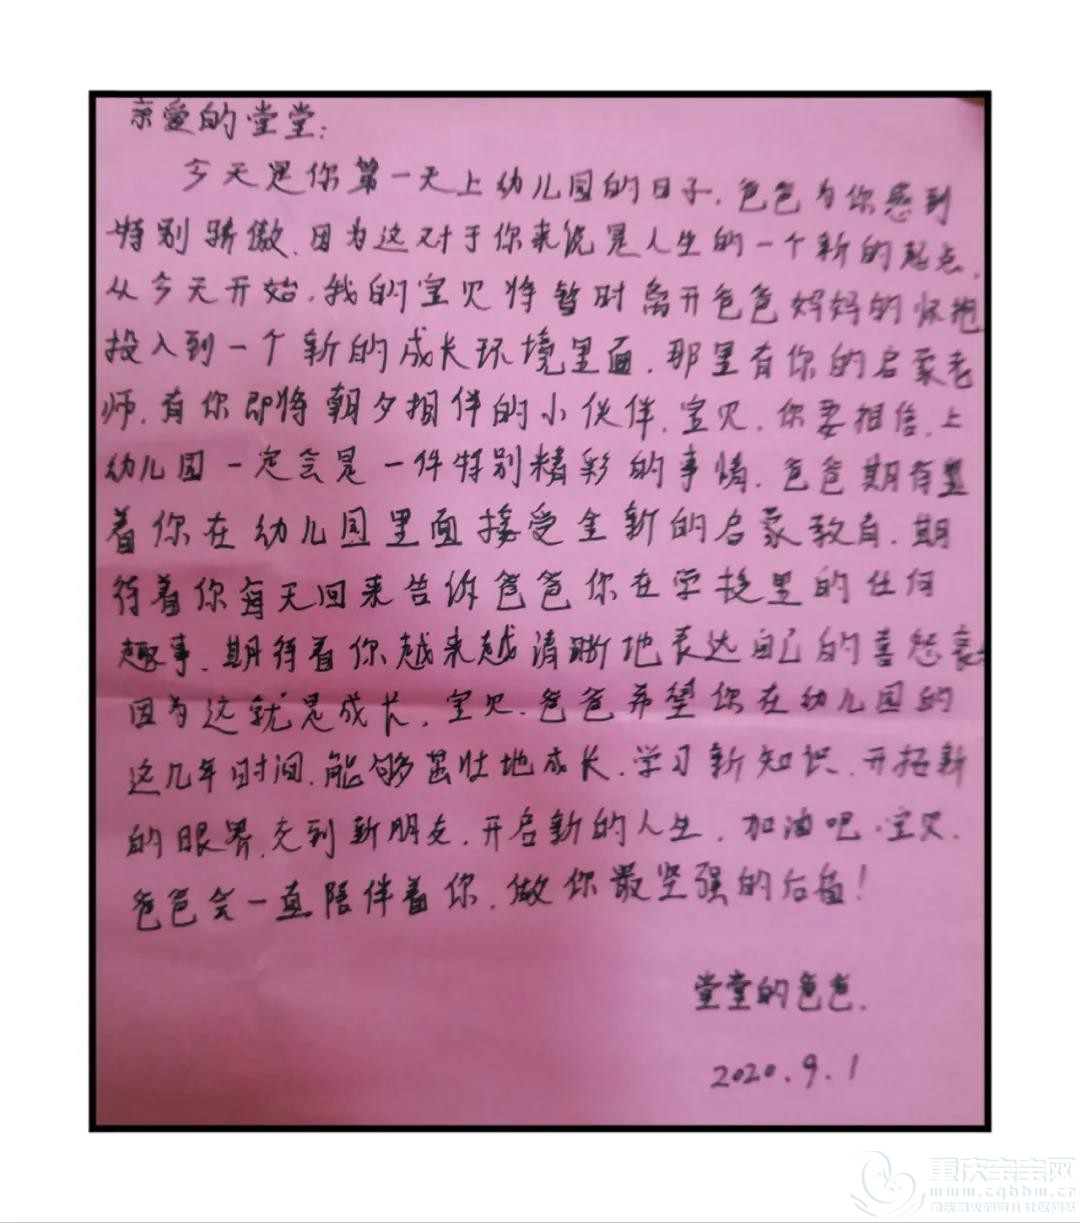 亲爱的堂堂：
今天是你第一天上幼儿园的日子，爸爸为你感到
特别骄傲，因为这对于你来说是人生的一个新的起点，
从今天开始，我的宝贝将暂时离开爸爸妈妈的怀抱
投入到一个新的成长环境里面，那里有你的启蒙老
师，有你即将朝夕相伴的小伙伴，宝贝，你要相信，上
幼儿园一定会是一件特别精彩的事情，爸爸期待
着你在幼儿园里面接受全新的启蒙教育，期
待着你每天回来告诉爸爸你在学校里的任何
趣事，期待着你越来越清晰地表达自己的喜怒哀
因为这就是成长，宝贝，爸爸希望你在幼儿园的
这几年时间，能够茁壮地成长，学习新知识，开拓新
的眼界，交到新朋友，开启新的人生，加油吧，宝贝，
爸爸会一直陪伴着你，做你最坚强的后盾！
堂堂的爸爸．
2020.9.1
重庆宝宝网
www.cqbbw.cn